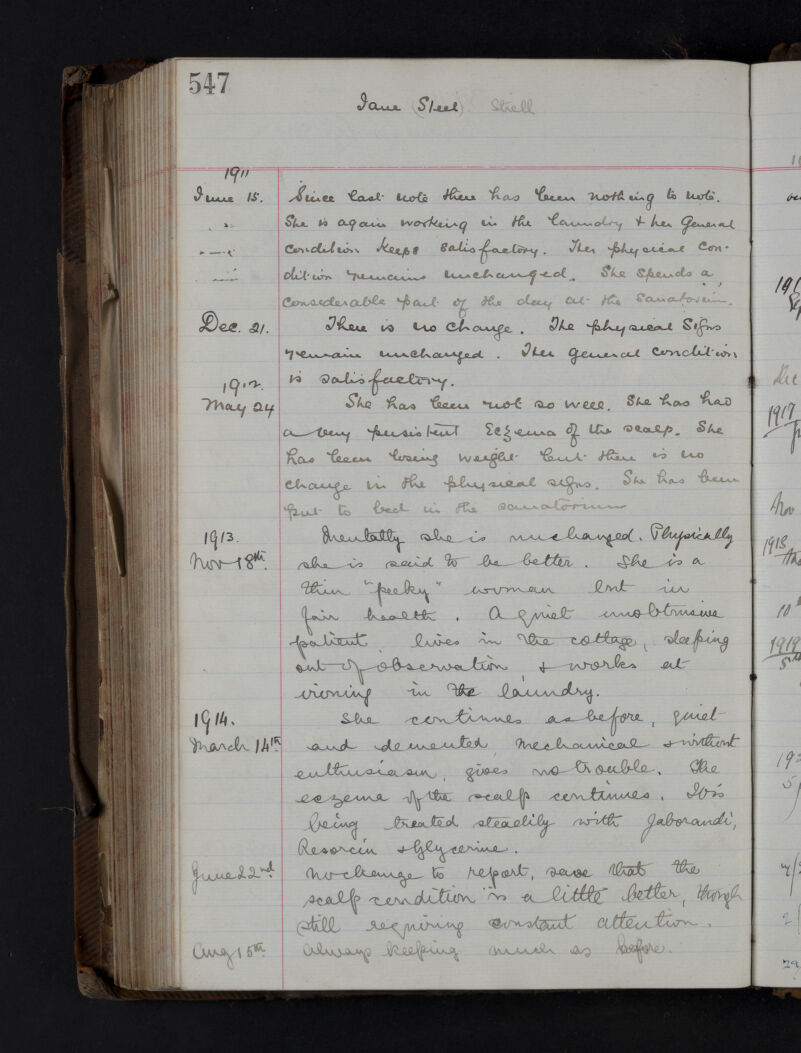 547
Jane (Steel) Strell
1911
June 15. Since last note there has been nothing to note.
She is again working in the laundry & her General
condition keeps satisfactory. Her physical con-
dition remains unchanged. She spends a
considerable part of the day at the Sanatorium.
Dec. 21. There is no change. The physical Signs
remain unchanged. Her general condition
is satisfactory.
1912.
May 24 She has been not so well. She has had
a very persistent Eczema of the scalp. She
has been losing weight but there is no
change in the physical signs. She has been
put to bed in the sanatorium
1913. Mentally she is unchanged. Physically
Nov 18th. she is said to be better. She is a
thin "peeky" woman but in
fair health. A quiet unobtrusive
patient, lives in the cottage, sleeping
out of observation, & works at
ironing in the laundry.
1914. She continues as before, quiet
March 14th and demented, mechanical & without
enthusiasm, gives no trouble. The
eczema of the scalp continues. It is
being treated steadily with Jaborandi,
Resorcin & Glycerine.
June 22nd. No change to report, save that the
scalp condition is a little better, though
still requiring constant attention.
Aug 15th. Always keeping much as before.
Dec
1917
Nov
1918
10th
1919